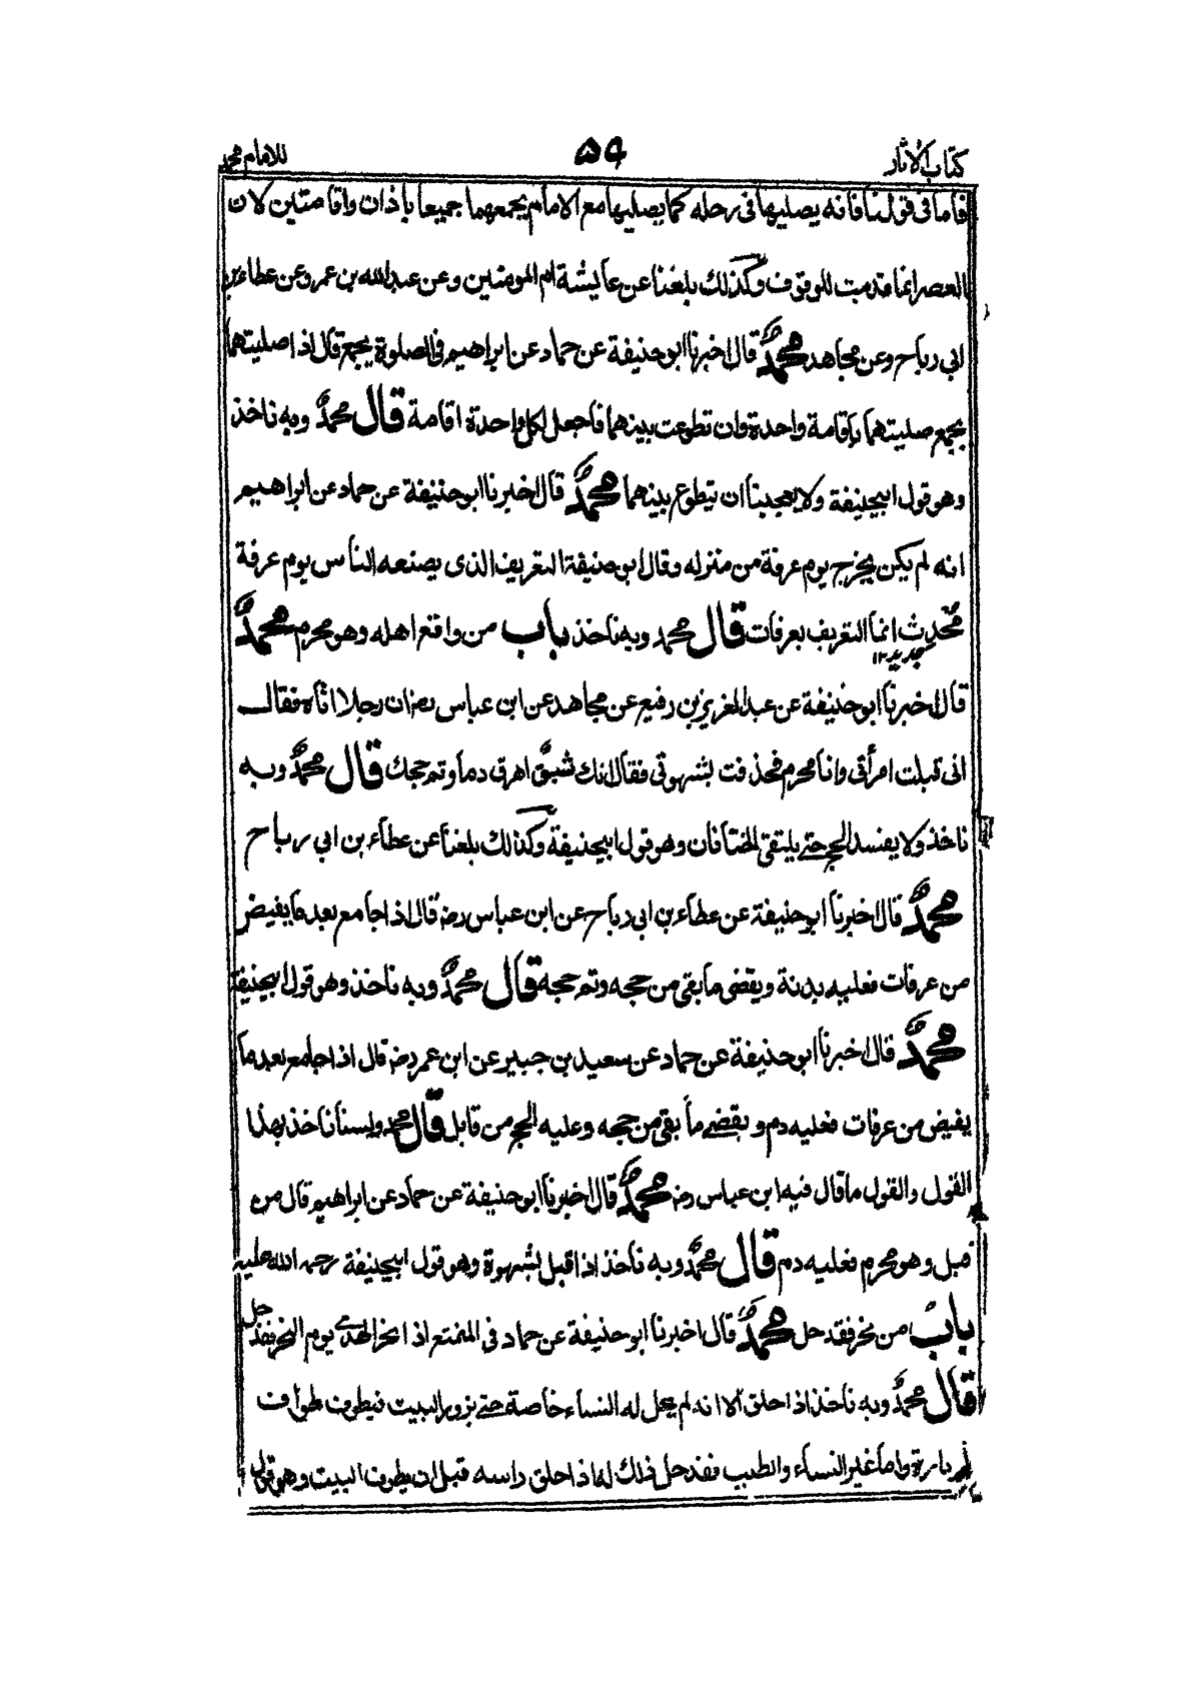 كتاب الاثار ۵۹ للامام محمد
فاما فى قولنا فانه يصليها فى رحله كما يصليها مع الامام يجمعهما جميعا باذان واقامتين لان
العصر انما قدمت للوقوف وكذلك بلغنا عن عايشة ام المومنين وعن عبدالله بن عمر وعن عطاء بن
ابي رباح وعن مجاهد محمدٌ قال اخبرنا ابوحنيفة عن حماد عن ابراهيم فى الصلوة يجمع قال اذا صليتهما
بجمع صليتهما باقامة واحدة وان تطوعت بينهما فاجعل لكل واحدة اقامة قال محمدٌ وبه ناخذ
وهو قول ابيحنيفة ولا يعجبنا ان يتطوع بينهما محمدٌ قال اخبرنا ابوحنيفة عن حماد عن ابراهيم
انه لم يكن يخرج يوم عرفة من منزله وقال ابوحنيفة التعريف الذى يصنعه الناس يوم عرفة
مُحْدِث انما التعريف بعرفات قال محمد وبه ناخذ باب من واقع اهله وهو محرم محمدٌ
جديد ١٢
قال اخبرنا ابوحنيفة عن عبدالعزيز بن رفيع عن مجاهد عن ابن عباس رضـ ان رجلا اتاه فقال
انى قبلت امرأتى وانا محرم فحذفت لشهوتى فقال انك شبقٌ اهرق دما وتم حجك قال محمدٌ وبه
ناخذ ولا يفسد الحج حتے يلتقى الختانان وهو قول ابيحنيفة وكذالك بلغنا عن عطاء بن ابي رباح
محمدٌ قال اخبرنا ابوحنيفة عن عطاء بن ابى رباح عن ابن عباس رضـ قال اذا جامع بعد ما يفيض
من عرفات فعليه بدنة ويقضى ما بقى من حجه وتم حجه قال محمدٌ وبه ناخذ وهو قول ابيحنيفة
محمدٌ قال اخبرنا ابوحنيفة عن حماد عن سعيد بن جبير عن ابن عمر رضـ قال اذا جامع بعد ما
يفيض من عرفات فعليه دم و يقضے ما بقى من حجه وعليه الحج من قابل قال محمد ولسنا ناخذ بهذا
القول والقول ما قال فيه ابن عباس رضـ محمدٌ قال اخبرنا ابوحنيفة عن حماد عن ابراهيم قال من
قبل وهو محرم فعليه دم قال محمدٌ وبه ناخذ اذا قبل لشهوة وهو قول ابيحنيفة رحمه الله عليه
باب من نحر فقد حل محمدٌ قال اخبرنا ابوحنيفة عن حماد فى المتمتع اذا نحر الهدے يوم النحر فقد حل
قال محمدٌ وبه ناخذ اذا حلق الا انه لم يحل له النساء خاصة حتے يزور البيت فيطوف طواف
الزيارة واما غير النساء والطيب فقد حل ذلك له اذا حلق راسه قبل ان يطوف البيت وهو قول